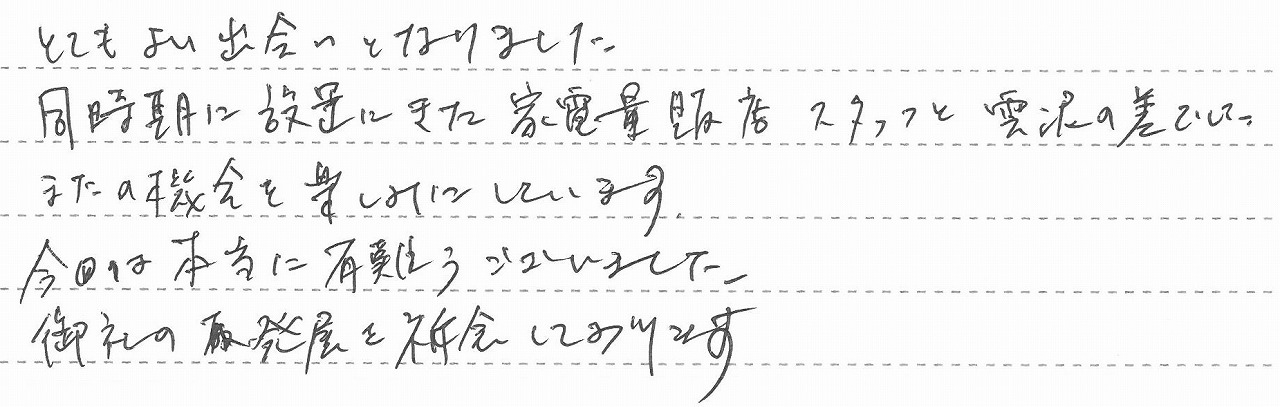 とてもよい出会いとなりました。
同時期に設置にきた家電量販店スタッフと雲泥の差でした。
またの機会を楽しみにしています。
今回は本当に有難うございました。
御社の発展を祈念しております